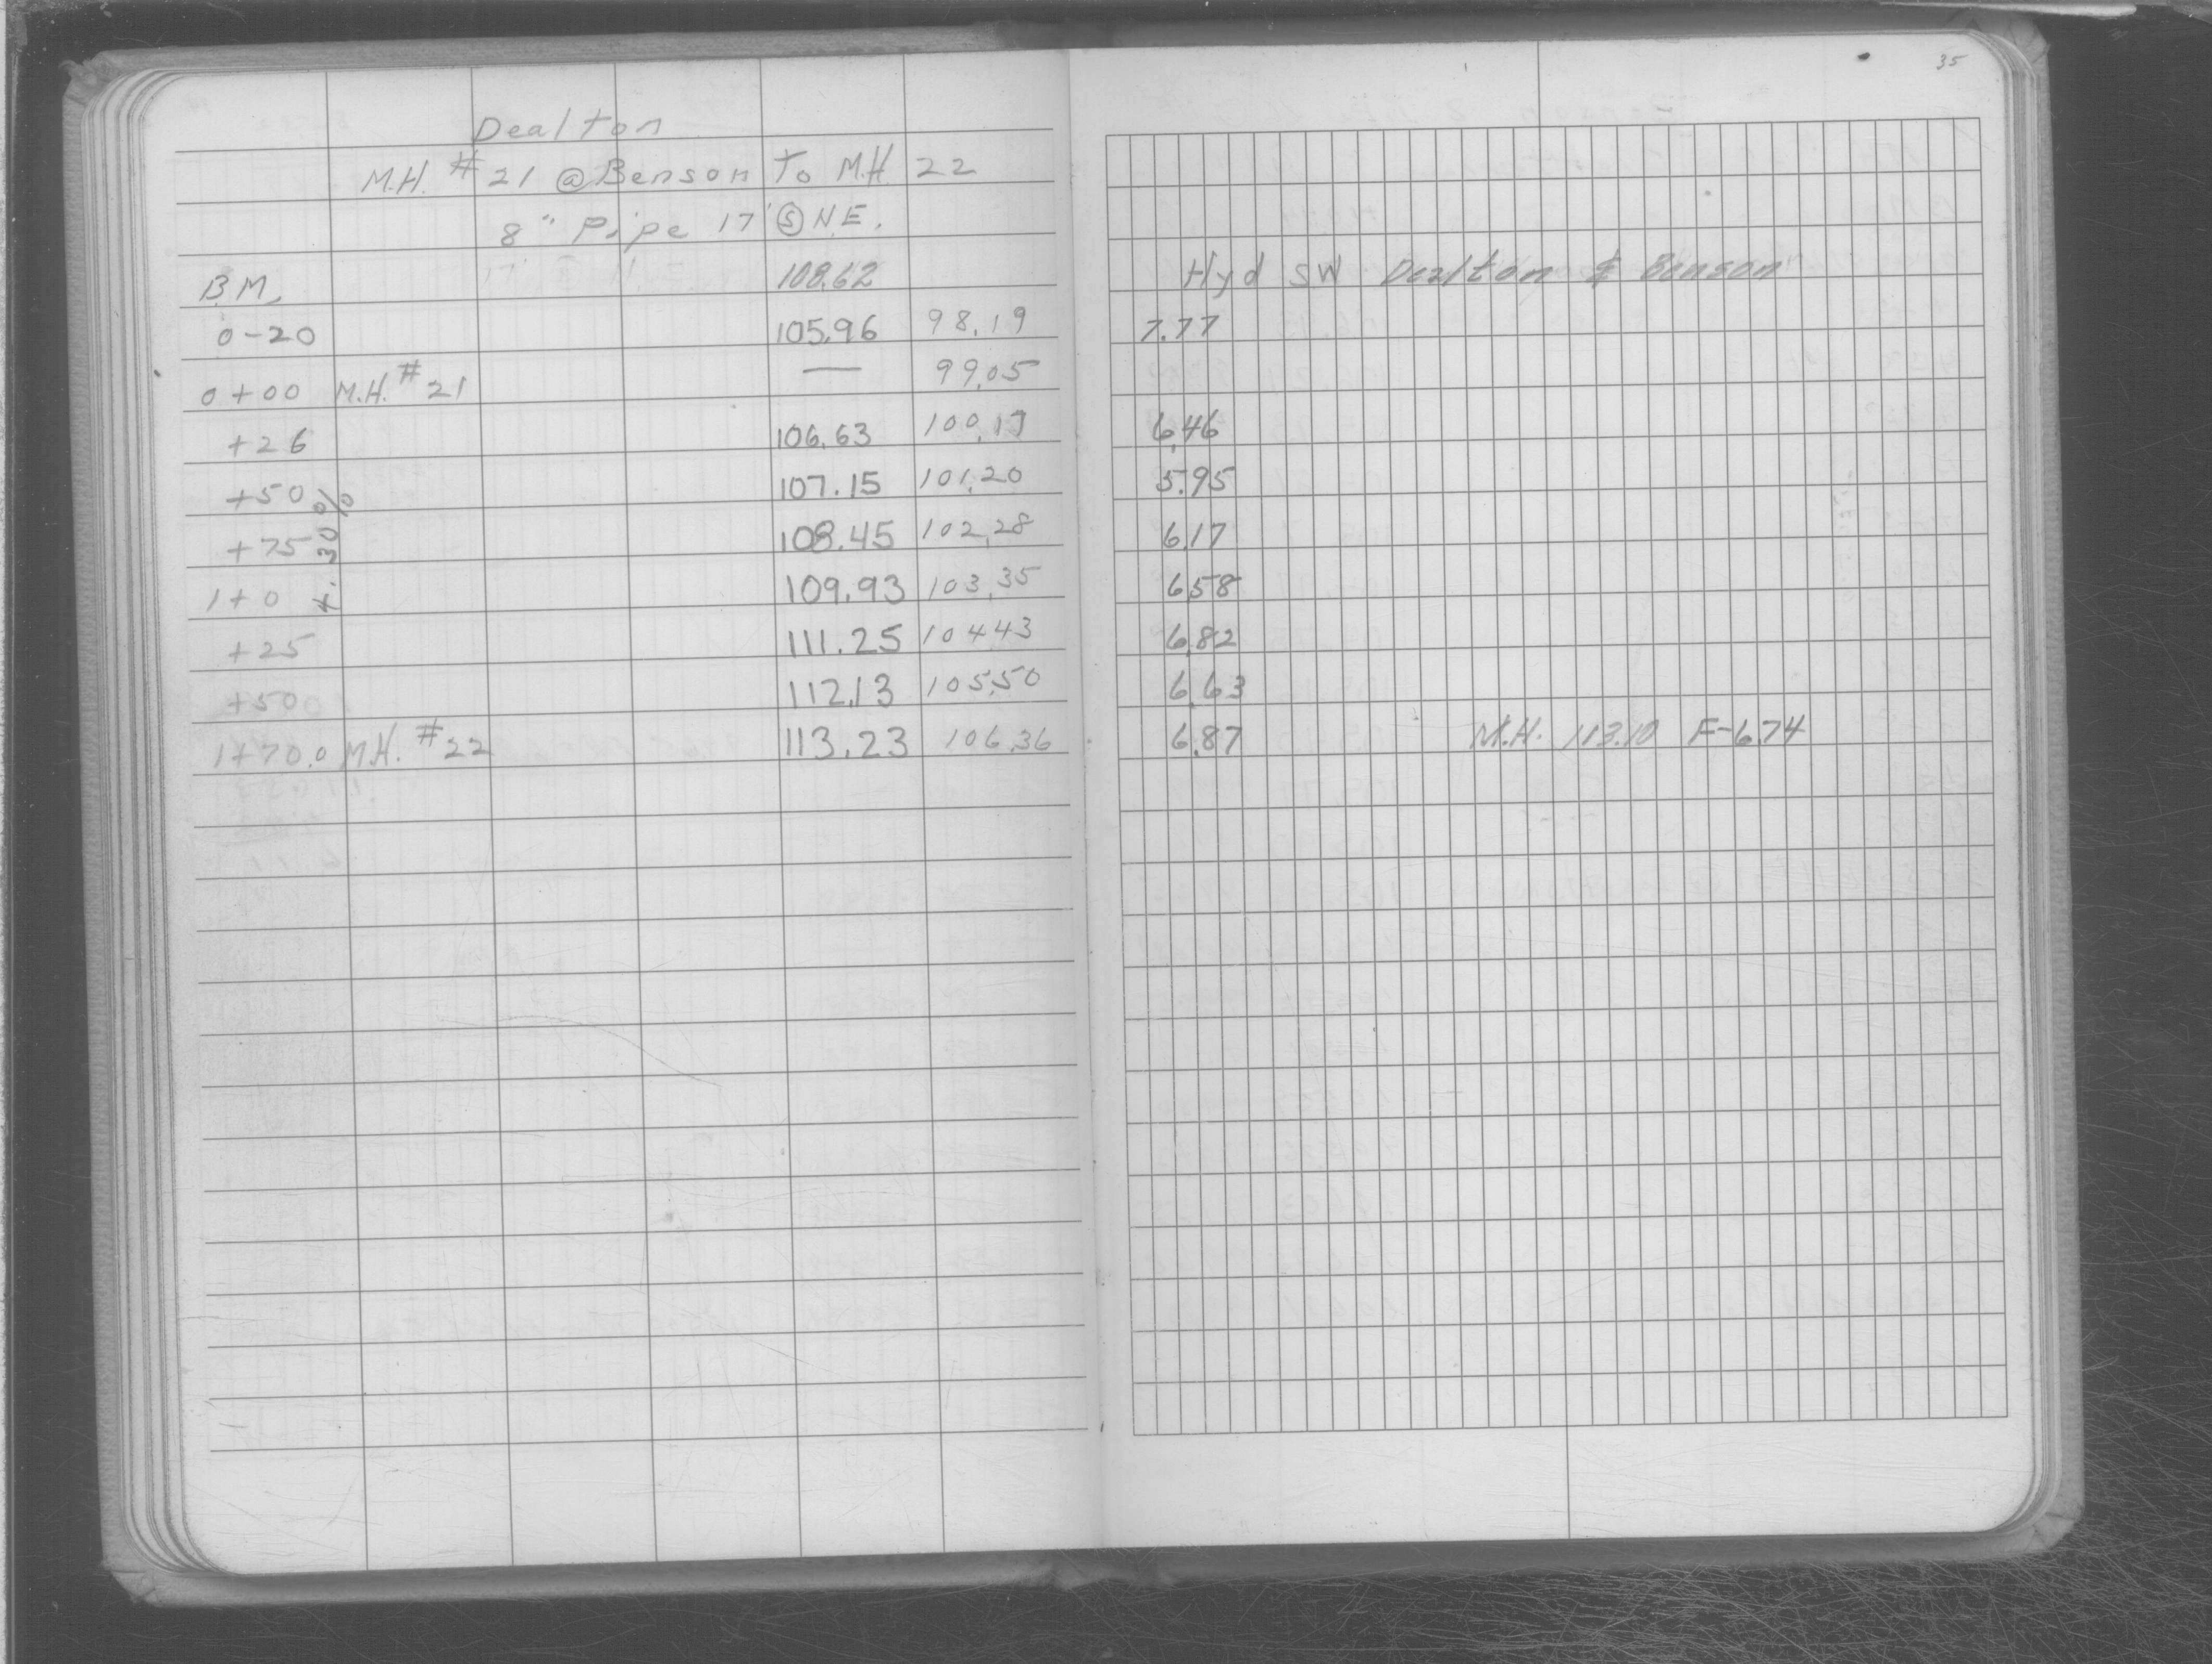 35
Dealton
M.H. #21 @ Benson To M.H. 22
8" Pipe 17' Ⓢ N.E.
B.M. 108.62 Hyd SW Dealton & Benson
0-20 105.96 98.19 7.77
0+00 M.H. #21 — 99.05
+26 106.63 100.17 6.46
+50 107.15 101.20 5.95
+75 108.45 102.28 6.17
4.30%
1+0 109.93 103.35 6.58
+25 111.25 104.43 6.82
+50 112.13 105.50 6.63
1+70.0 M.H. #22 113.23 106.36 6.87 M.H. 113.10 F-6.74